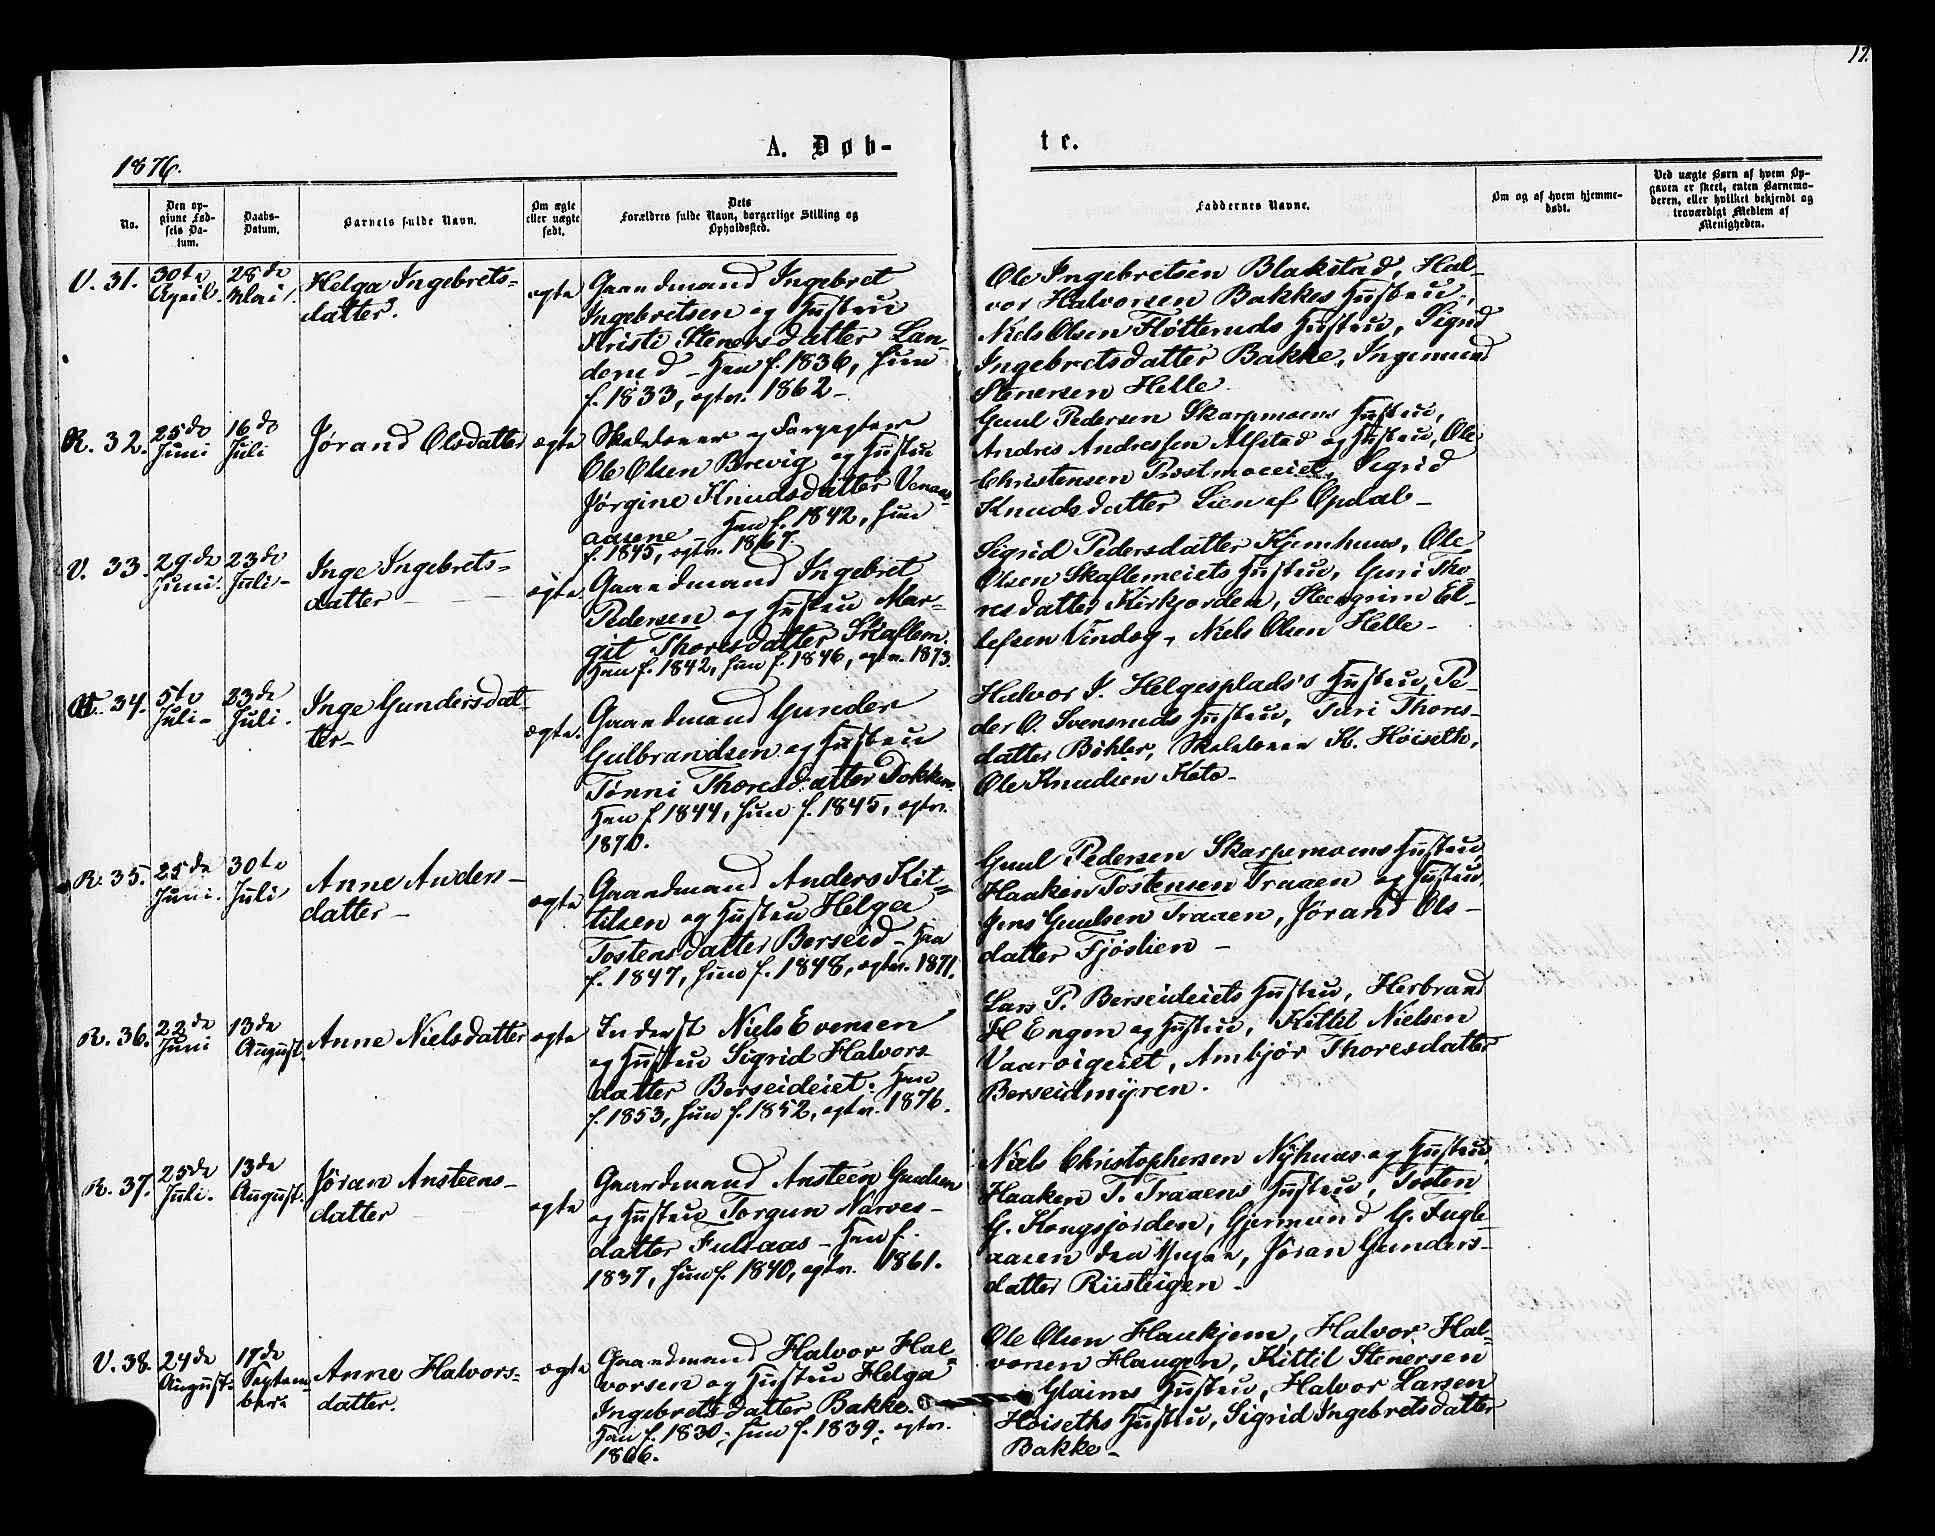 17.
A. Døb-
te.
1876.
No.
Den op-
givne Fød-
sels Da-
tum.
Daabs-
Datum.
Barnets fulde Navn.
Om ægte
eller uægte
født.
Dets
Forældres fulde Navn, borgerlige Stilling og
Opholdssted.
Faddernes Navne.
Om og af hvem hjemme-
døbt.
Ved uægte Børn af hvem Op-
gaven er skeet, enten Barnemo-
deren, eller hvilket bekjendt og
troværdigt Medlem af
Menigheden.
V. 31.
30te
April.
28de
Mai
Helga Ingebrets-
datter.
ægte
Gaardmand Ingebret
Ingebretsen og Hustru
Kristi Stenersdatter Lan-
derud - Han f. 1836, hun
f. 1833, egtev. 1862 -
Ole Ingebretsen Blakstad, Hal-
vor Halvorsen Bakkes Hustru,
Niels Olsen Fløtteruds Hustru, Sigrid
Ingebretsdatter Bakke, Ingemund
Stenersen Helle
R. 32.
25de
Juni
16de
Juli
Jørand Olsdatter
ægte
Skolelærer og Forpagter
Ole Olsen Brevig og Hustru
Jørgine Knudsdatter Venaas-
aasene Han f. 1842, hun
f. 1845, egtv. 1867.
Guul Pedersen Skarpmoens Hustru,
Andres Andressen Alfstad og Hustru, Ole
Christensen Prestmoeiet, Sigrid
Knudsdatter Lien af Opdal -
V. 33.
29de
Juni.
23de
Juli -
Inge Ingebrets-
datter -
ægte.
Gaardmand Ingebret
Pedersen og Hustru Mar-
git Thoresdatter Skaflem.
Han f. 1842, hun f. 1846, egtv. 1873.
Sigrid Pedersdatter Kjemhuus, Ole
Olsen Skaflemeiets Hustru, Guri Tho-
resdatter Kirkjorden, Steengrim El-
lefsen Vindeg, Niels Olsen Helle -
34.
5te
Juli -
23de
Juli.
Inge Gundersdat-
ter -
ægte.
Gaardmand Gunder
Gulbrandsen og Hustru
Tønni Thoresdatter Dokken.
Han f. 1844, hun f. 1845, egtv.
1870.
Halvor I. Helgesplads's Hustru, Pe-
der O. Svensruds Hustru, Turi Thores-
datter Bøhler, Skolelærer K. Høiseth,
Ole Knudsen Kato -
R. 35.
25de
Juni.
30te
Juli
Anne Anders-
datter -
ægte
Gaardmand Anders Kit-
tilsen og Hustru Helga
Tostensdatter Berseid - Han
f. 1847, hun f. 1848, egtv. 1871.
Guul Pedersen Skarpemoens Hustru,
Haaken Tostensen Traaen og Hustru,
Jens Guulsen Traaen, Jørand Ols-
datter Fjøslien -
R. 36.
22de
Juni
13de
August.
Anne Nielsdatter
ægte
Inderst Niels Evensen
og Hustru Sigrid Halvors-
datter Berseideiet. Han
f. 1853, hun f. 1852, egtv. 1876.
Lars P. Berseideiets Hustru, Herbrand
H Engen og Hustru, Kittil Nielsen
Vaarvigeiet, Ambjør Thoresdatter
Berseidmyren.
R. 37.
25de
Juli.
13de
August.
Jøran Ansteens-
datter
ægte
Gaardmand Ansteen Guulsen
og Hustru Torgun Narves-
datter Fulsaas - Han f.
1837, hun f. 1840, egtv. 1861.
Niels Christophersen Nyhuus og Hustru,
Haaken T. Traaens Hustru, Tosten
G. Kongsjorden, Gjermund G. Fugle-
aasen den yngre, Jøran Gunders-
datter Riisteigen -
V. 38.
24de
August.
17de
Septem-
ber.
Anne Halvors-
datter.
ægte
Gaardmand Halvor Hal-
vorsen og Hustru Helga
Ingebretsdatter Bakke.
Han f. 1830, hun f. 1839, egtv.
1866.
Ole Olsen Haukjem, Halvor Hal-
vorsen Haugen, Kittil Stenersen
Glaims Hustru, Halvor Larsen
Høiseths Hustru, Sigrid Ingebretsdatter
Bakke -